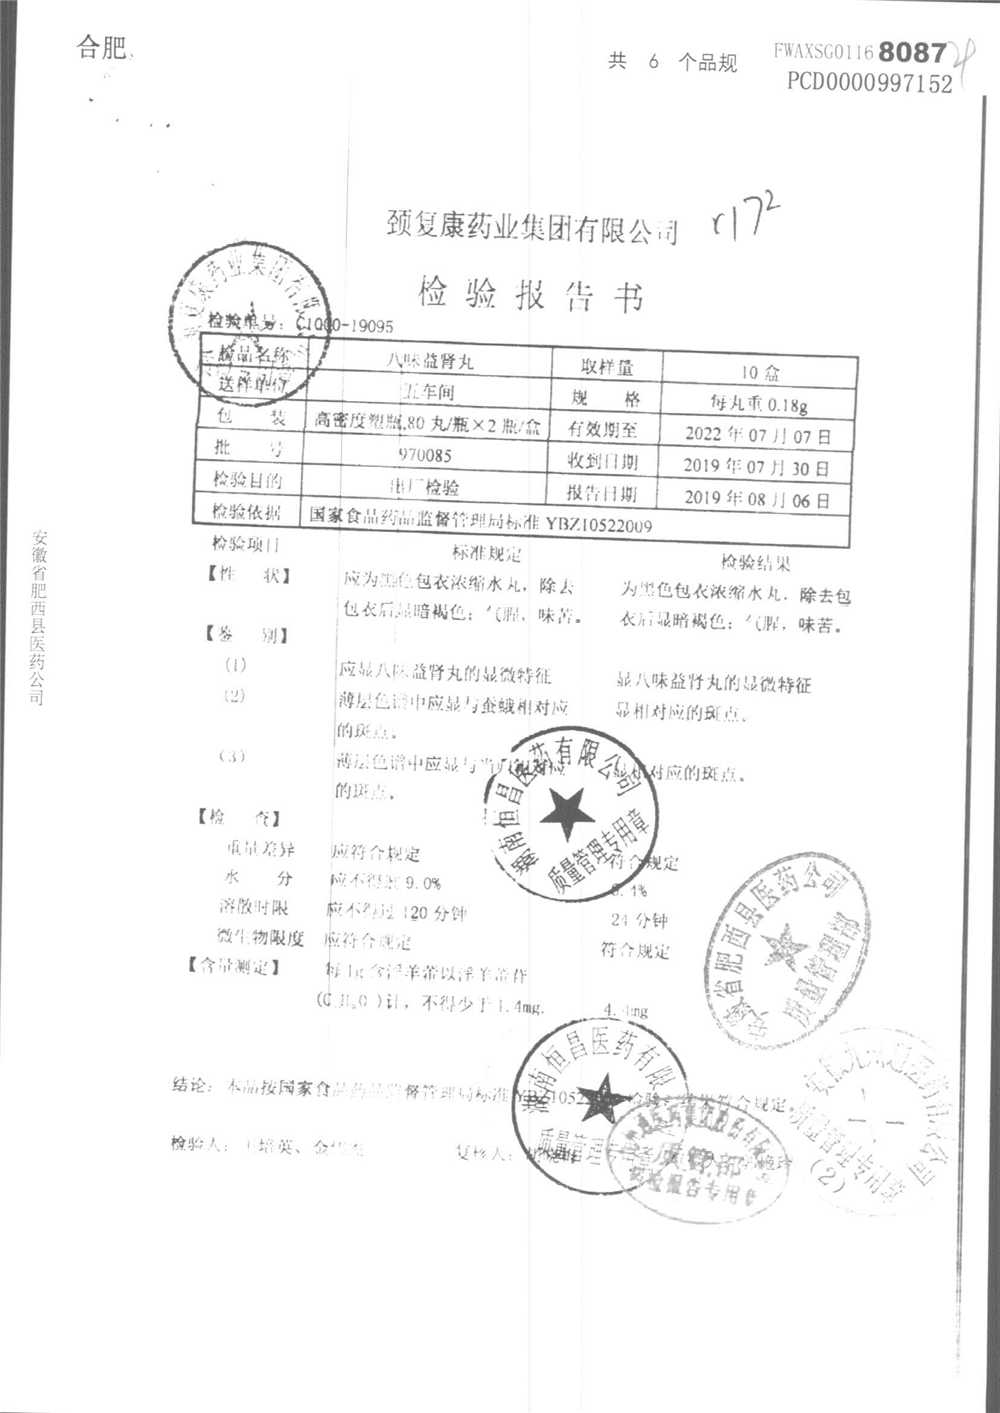 合肥
共 6 个品规
FWAXSG01168087
PCD0000997152
颈复康药业集团有限公司
r17²
检验报告书
检验单号：C1000-19095
检品名称 八味益肾丸 取样量 10盒
送样单位 五车间 规 格 每丸重0.18g
包 装 高密度塑瓶,80丸/瓶×2瓶/盒 有效期至 2022年07月07日
批 号 970085 收到日期 2019年07月30日
检验目的 出厂检验 报告日期 2019年08月06日
检验依据 国家食品药品监督管理局标准YBZ10522009
检验项目 标准规定 检验结果
【性 状】 应为黑色包衣浓缩水丸，除去 为黑色包衣浓缩水丸，除去包
包衣后显暗褐色；气腥，味苦。 衣后显暗褐色；气腥，味苦。
【鉴 别】
(1) 应显八味益肾丸的显微特征 显八味益肾丸的显微特征
(2) 薄层色谱中应显与蚕蛾相对应 显相对应的斑点。
的斑点。
(3) 薄层色谱中应显与当归相对应 显相对应的斑点。
的斑点。
【检 查】
重量差异 应符合规定 符合规定
水 分 应不得过9.0%
溶散时限 应不得过120分钟 24分钟
微生物限度 应符合规定 符合规定
【含量测定】 每1g含淫羊藿以淫羊藿苷
计，不得少于1.4mg.
结论：本品按国家食品药品监督管理局标准 检验，结果符合规定
检验人：王培英、 复核人：
安徽省肥西县医药公司
湖南恒昌医药有限公司
质量管理专用章
安徽省肥西县医药公司
质量管理部
湖南恒昌医药有限
质量管理
质管部
检验报告专用章
质量管理专用章
(2)